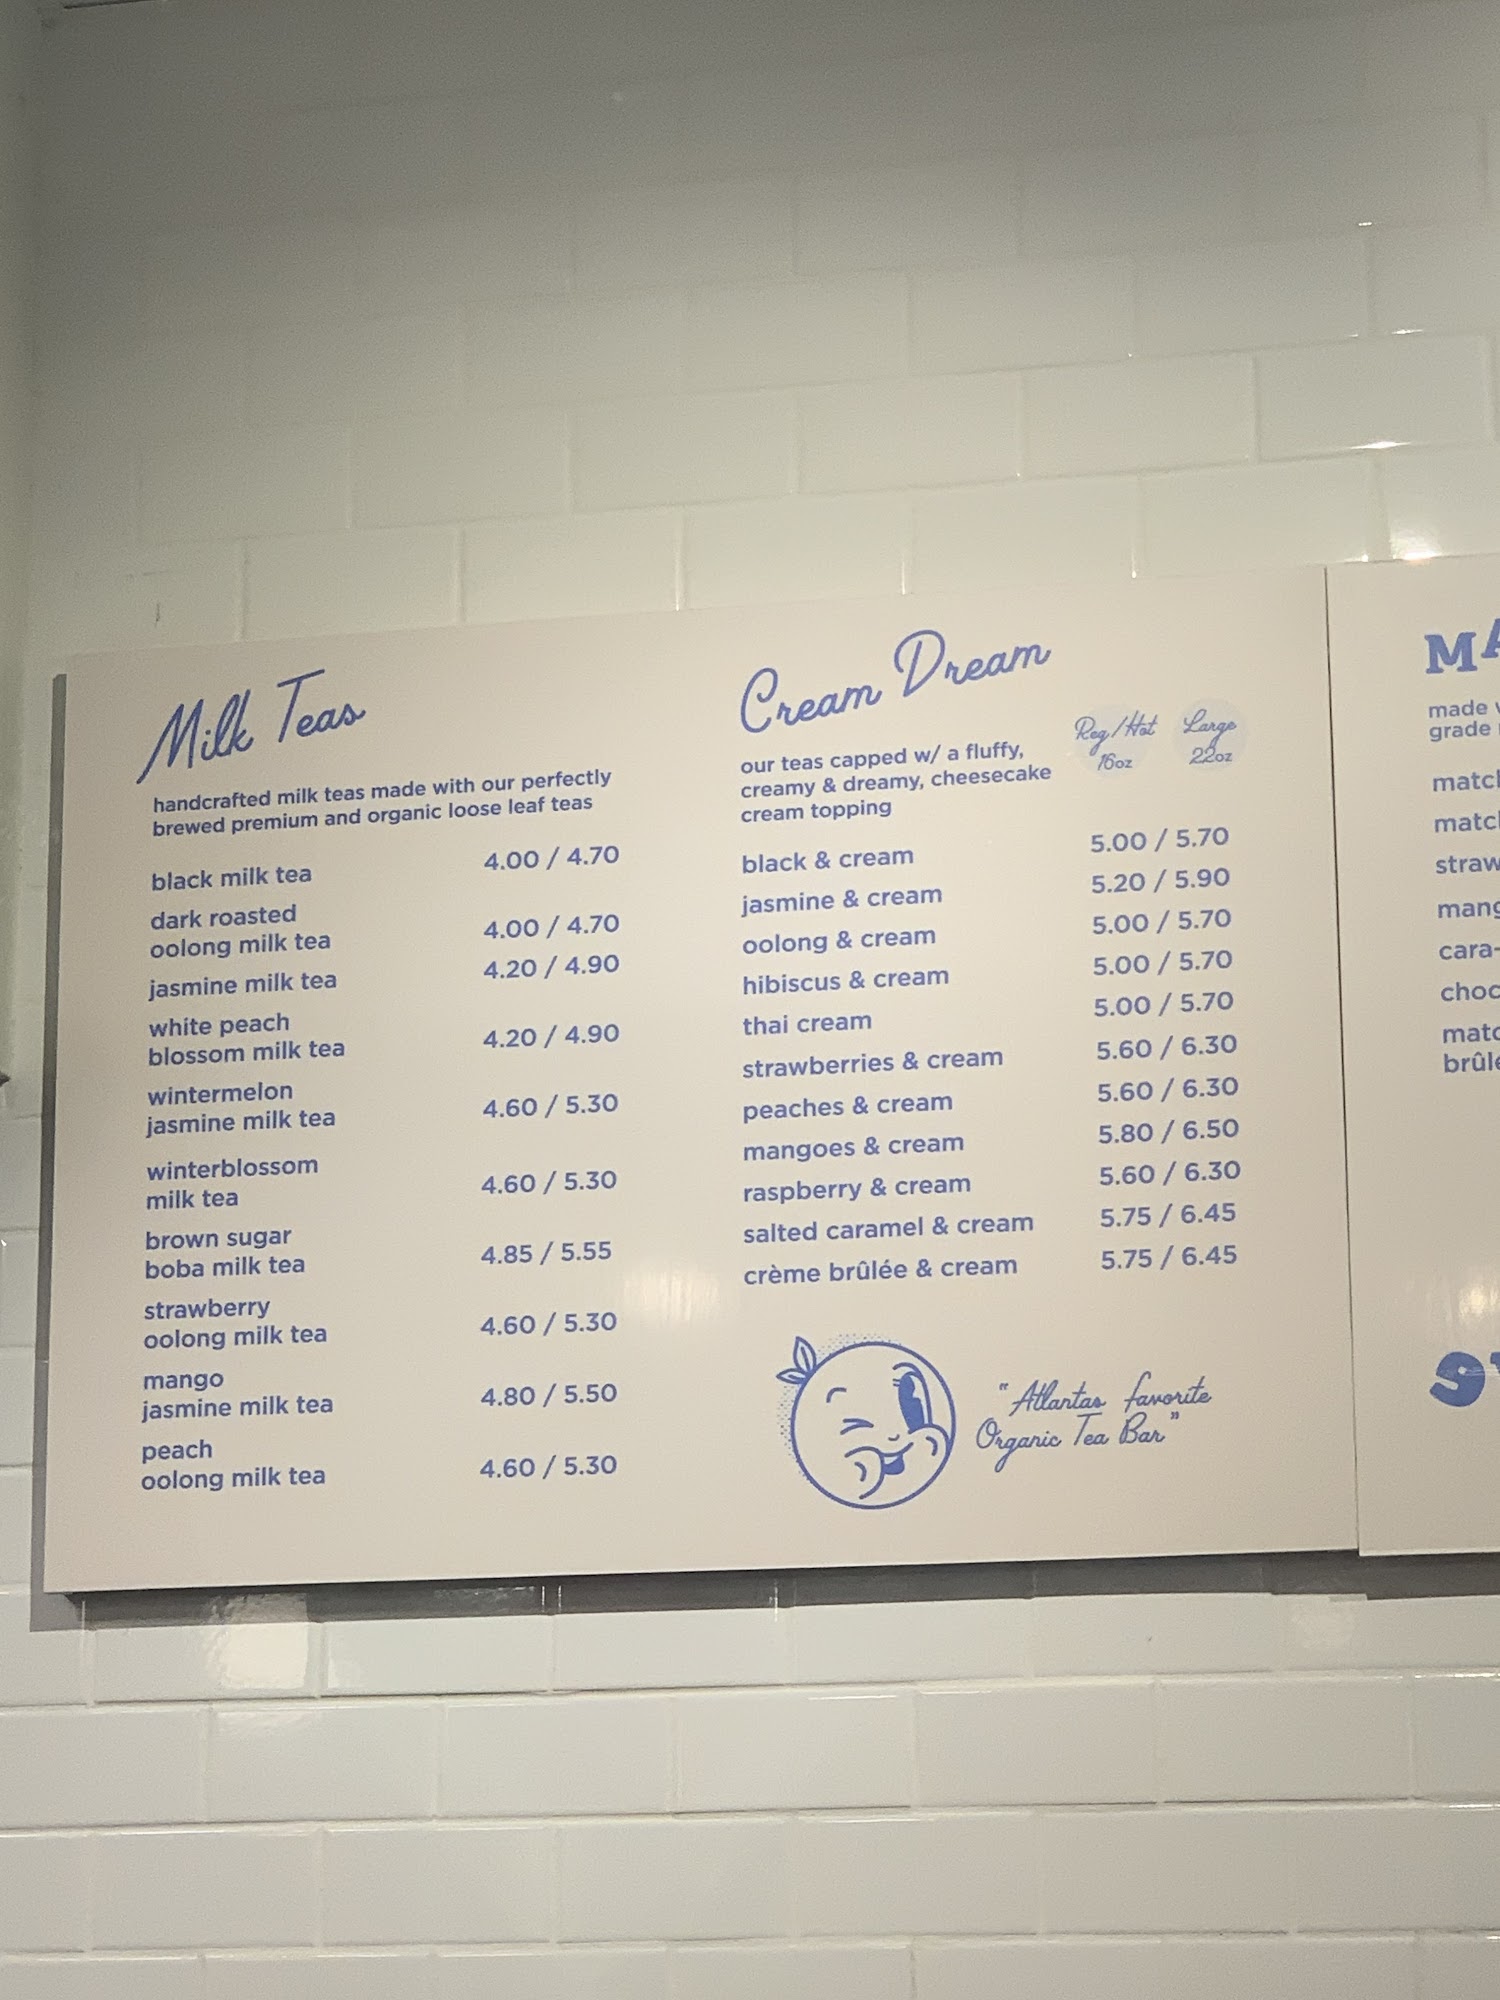 Milk Teas
handcrafted milk teas made with our perfectly
brewed premium and organic loose leaf teas
black milk tea 4.00 / 4.70
dark roasted
oolong milk tea 4.00 / 4.70
jasmine milk tea 4.20 / 4.90
white peach
blossom milk tea 4.20 / 4.90
wintermelon
jasmine milk tea 4.60 / 5.30
winterblossom
milk tea 4.60 / 5.30
brown sugar
boba milk tea 4.85 / 5.55
strawberry
oolong milk tea 4.60 / 5.30
mango
jasmine milk tea 4.80 / 5.50
peach
oolong milk tea 4.60 / 5.30
Cream Dream
our teas capped w/ a fluffy,
creamy & dreamy, cheesecake
cream topping
Reg/Hot Large
16oz 22oz
black & cream 5.00 / 5.70
jasmine & cream 5.20 / 5.90
oolong & cream 5.00 / 5.70
hibiscus & cream 5.00 / 5.70
thai cream 5.00 / 5.70
strawberries & cream 5.60 / 6.30
peaches & cream 5.60 / 6.30
mangoes & cream 5.80 / 6.50
raspberry & cream 5.60 / 6.30
salted caramel & cream 5.75 / 6.45
crème brûlée & cream 5.75 / 6.45
"Atlantas favorite
Organic Tea Bar"
made
grade